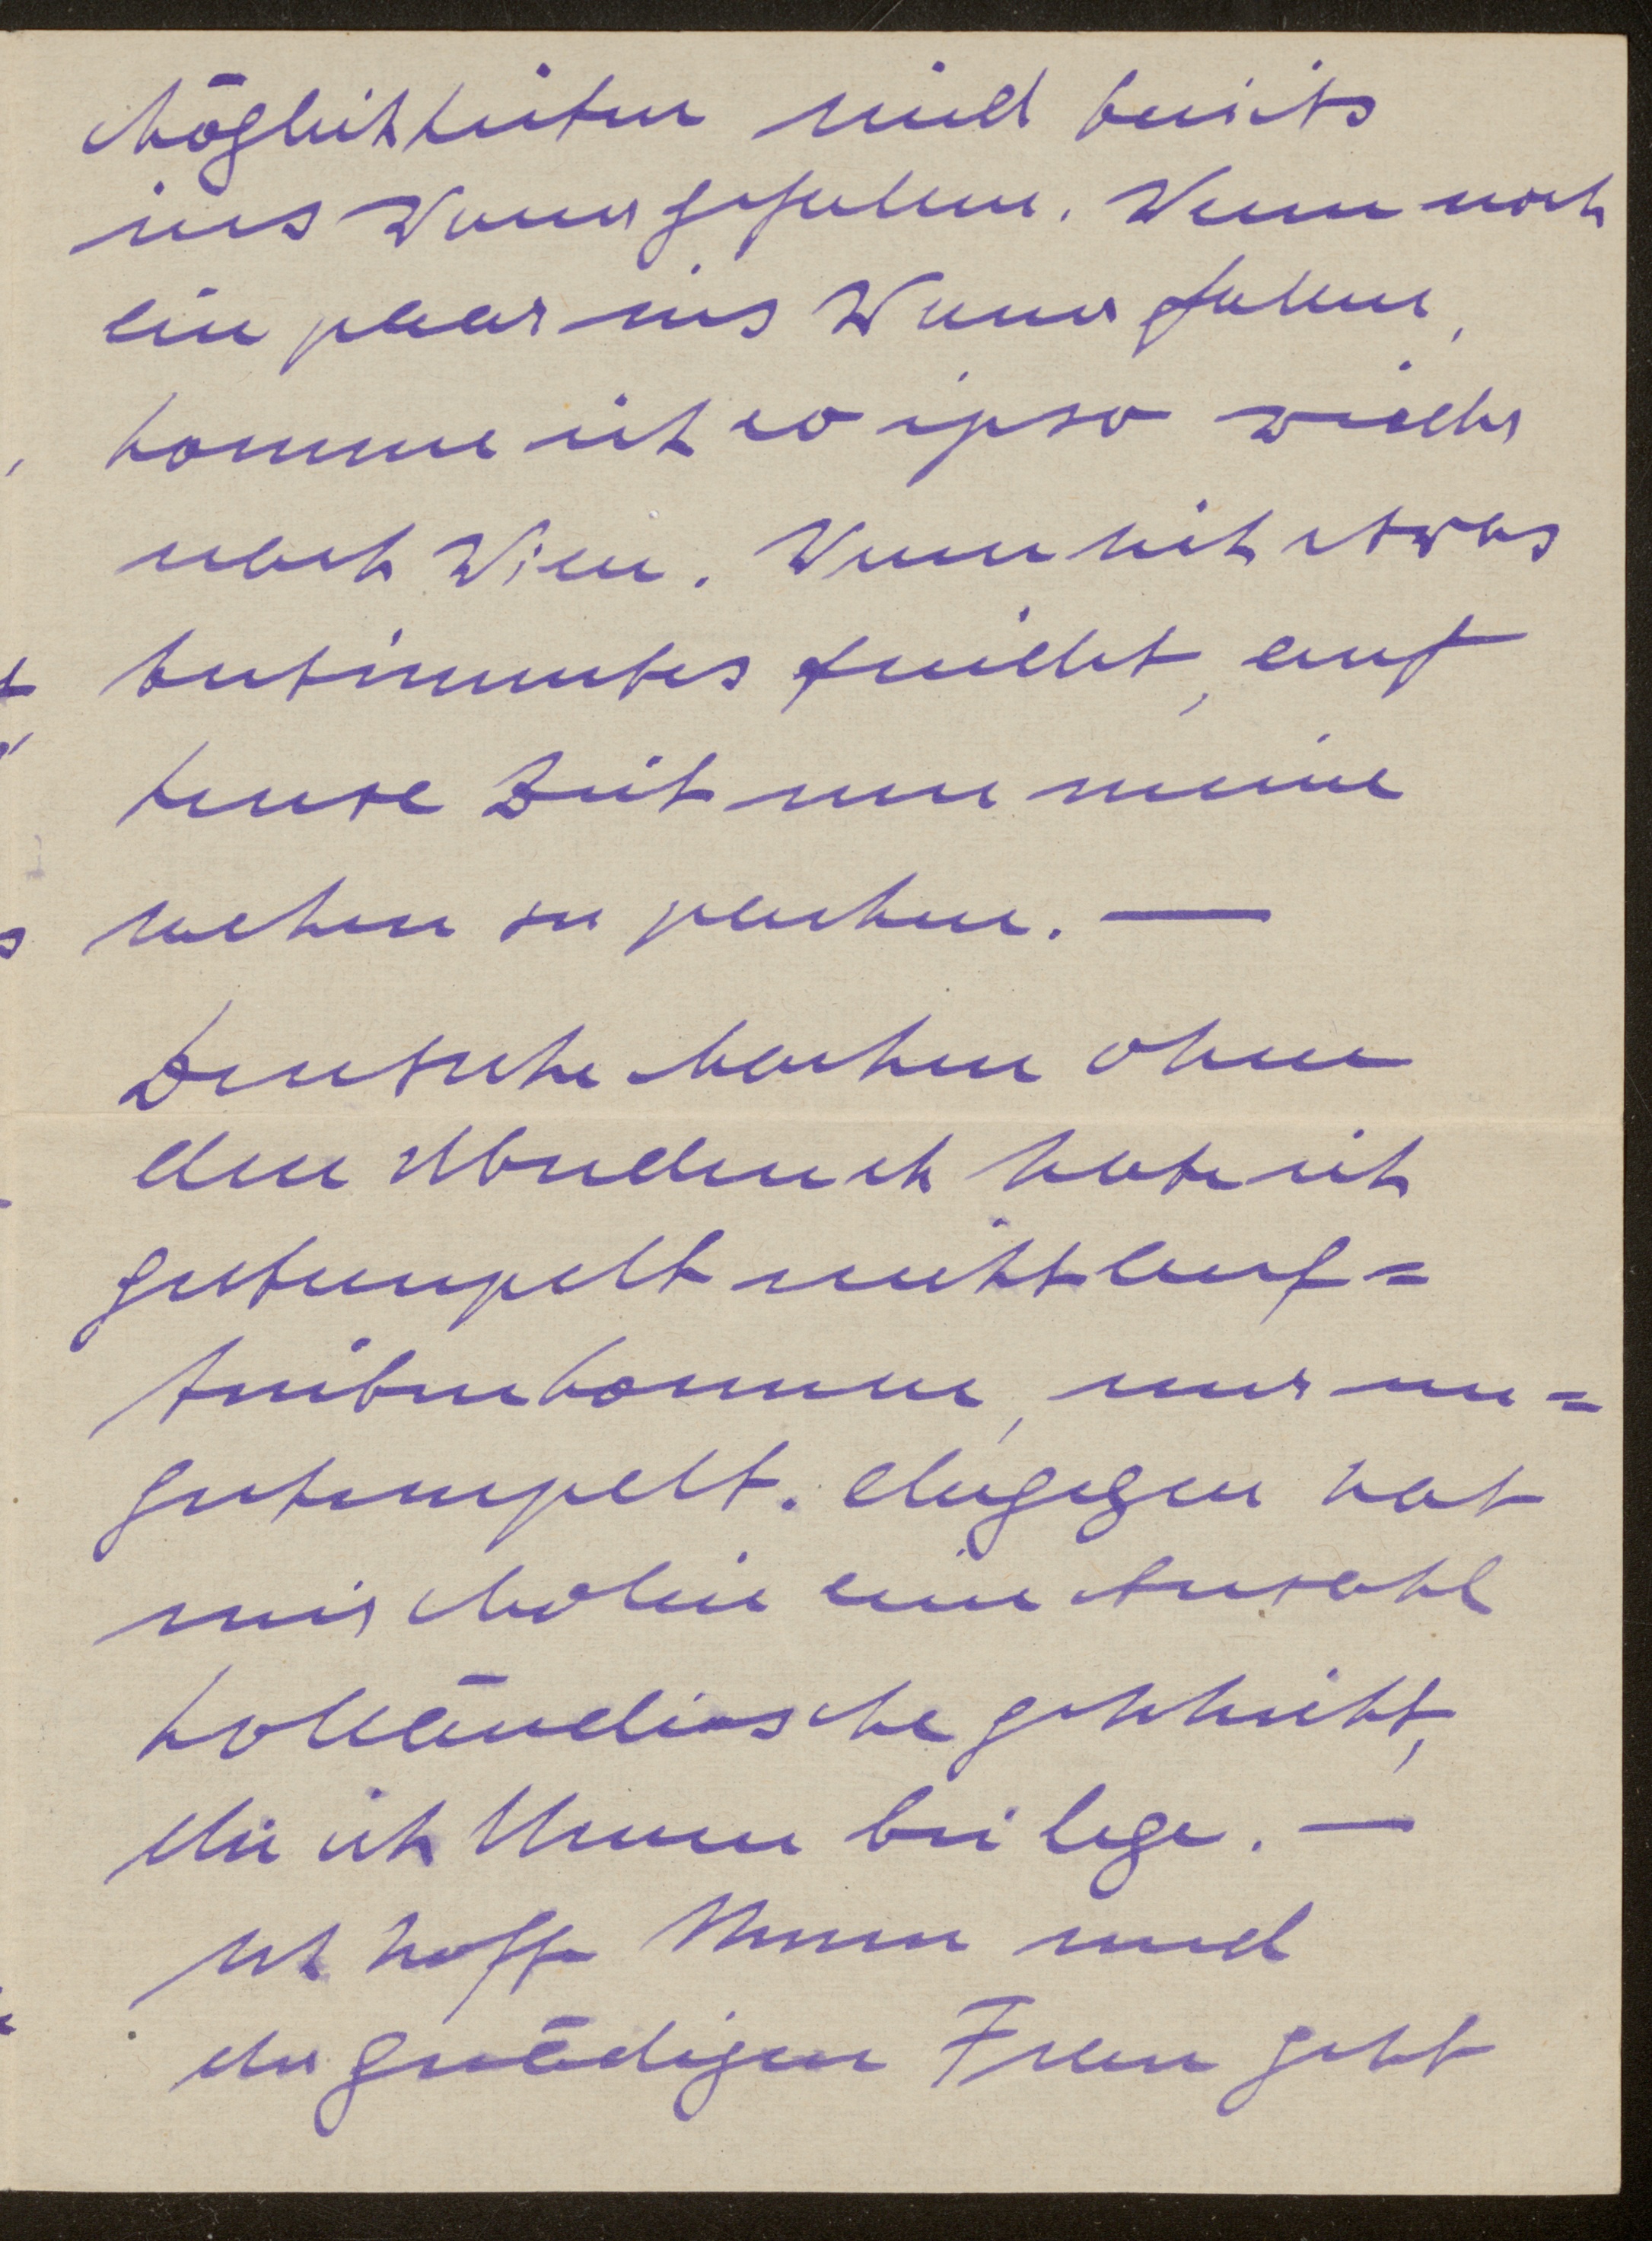 Möglichkeiten sind bereits
ins Wasser gefallen. Wenn noch
ein paar ins Wasser fallen,
komme ich eo ipso wieder
nach Wien. Wenn sich etwas
bestimmtes findet, auf
kurze Zeit um meine
Sachen zu packen. —
Deutsche Marken ohne
den Aufdruck habe ich
gestempelt nicht auf=
treiben können, nur un=
gestempelt. Dagegen hat
mir eine Anzahl
holländische geschickt,
die ich Ihnen beilege. —
Ich hoffe Ihnen und
der gnädigen Frau geht